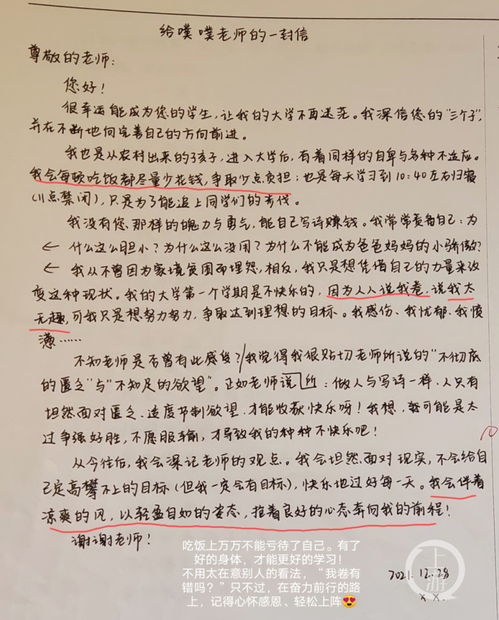 给噗噗老师的一封信
尊敬的老师：
您好！
很幸运能成为您的学生，让我的大学不再迷茫。我深信您的"三个子"，
并在不断地向完善自己的方向前进。
我也是从农村出来的孩子，进入大学后，有着同样的自卑与各种不适应。
我会每顿吃饭都尽量少花钱，争取少点负担；也是每天学习到10:40左右归寝
（11点禁闭），只是为了能追上同学们的步伐。
我没有您那样的魄力与勇气，能自己写诗赚钱。我常常责备自己：为
什么这么胆小？为什么这么没用？为什么不能成为爸爸妈妈的小骄傲？
我从不曾因为家境贫困而埋怨，相反，我只是想凭借自己的力量来改
变这种现状。我的大学第一个学期是不快乐的，因为人人说我卷，说我太
无趣，可我只是想努力努力，争取达到理想的目标。我感伤、我忧郁、我愤
懑……
不知老师是否曾有此感受？我觉得我很贴切老师所说的"不彻底
的匮乏"与"不知足的欲望"。正如老师说所：做人与写诗一样，人只有
坦然面对匮乏、适度节制欲望，才能收获快乐呀！我想，我可能是太
过争强好胜，不愿服输，才导致我的种种不快乐吧！
从今往后，我会深记老师的观点。我会坦然面对现实，不会给自
己定高攀不上的目标（但我一定会有目标），快乐地过好每一天。我会伴着
凉爽的风，以轻盈自如的姿态，抱着良好的心态奔向我的前程！
谢谢老师！
吃饭上万万不能亏待了自己。有了
好的身体，才能更好的学习！
不用太在意别人的看法，"我卷有
错吗？"只不过，在奋力前行的路
上，记得心怀感恩、轻松上阵😍
2021.12.28
××.
上游